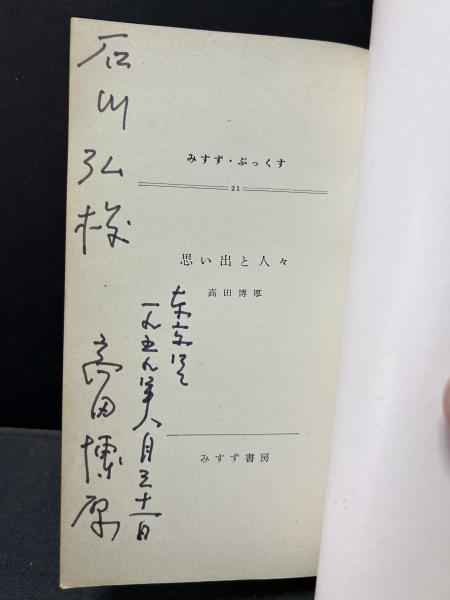 みすず・ぶっくす
21
思い出と人々
高田博厚
みすず書房
石川弘様
東京にて
一九五九年八月三十一日
高田博厚